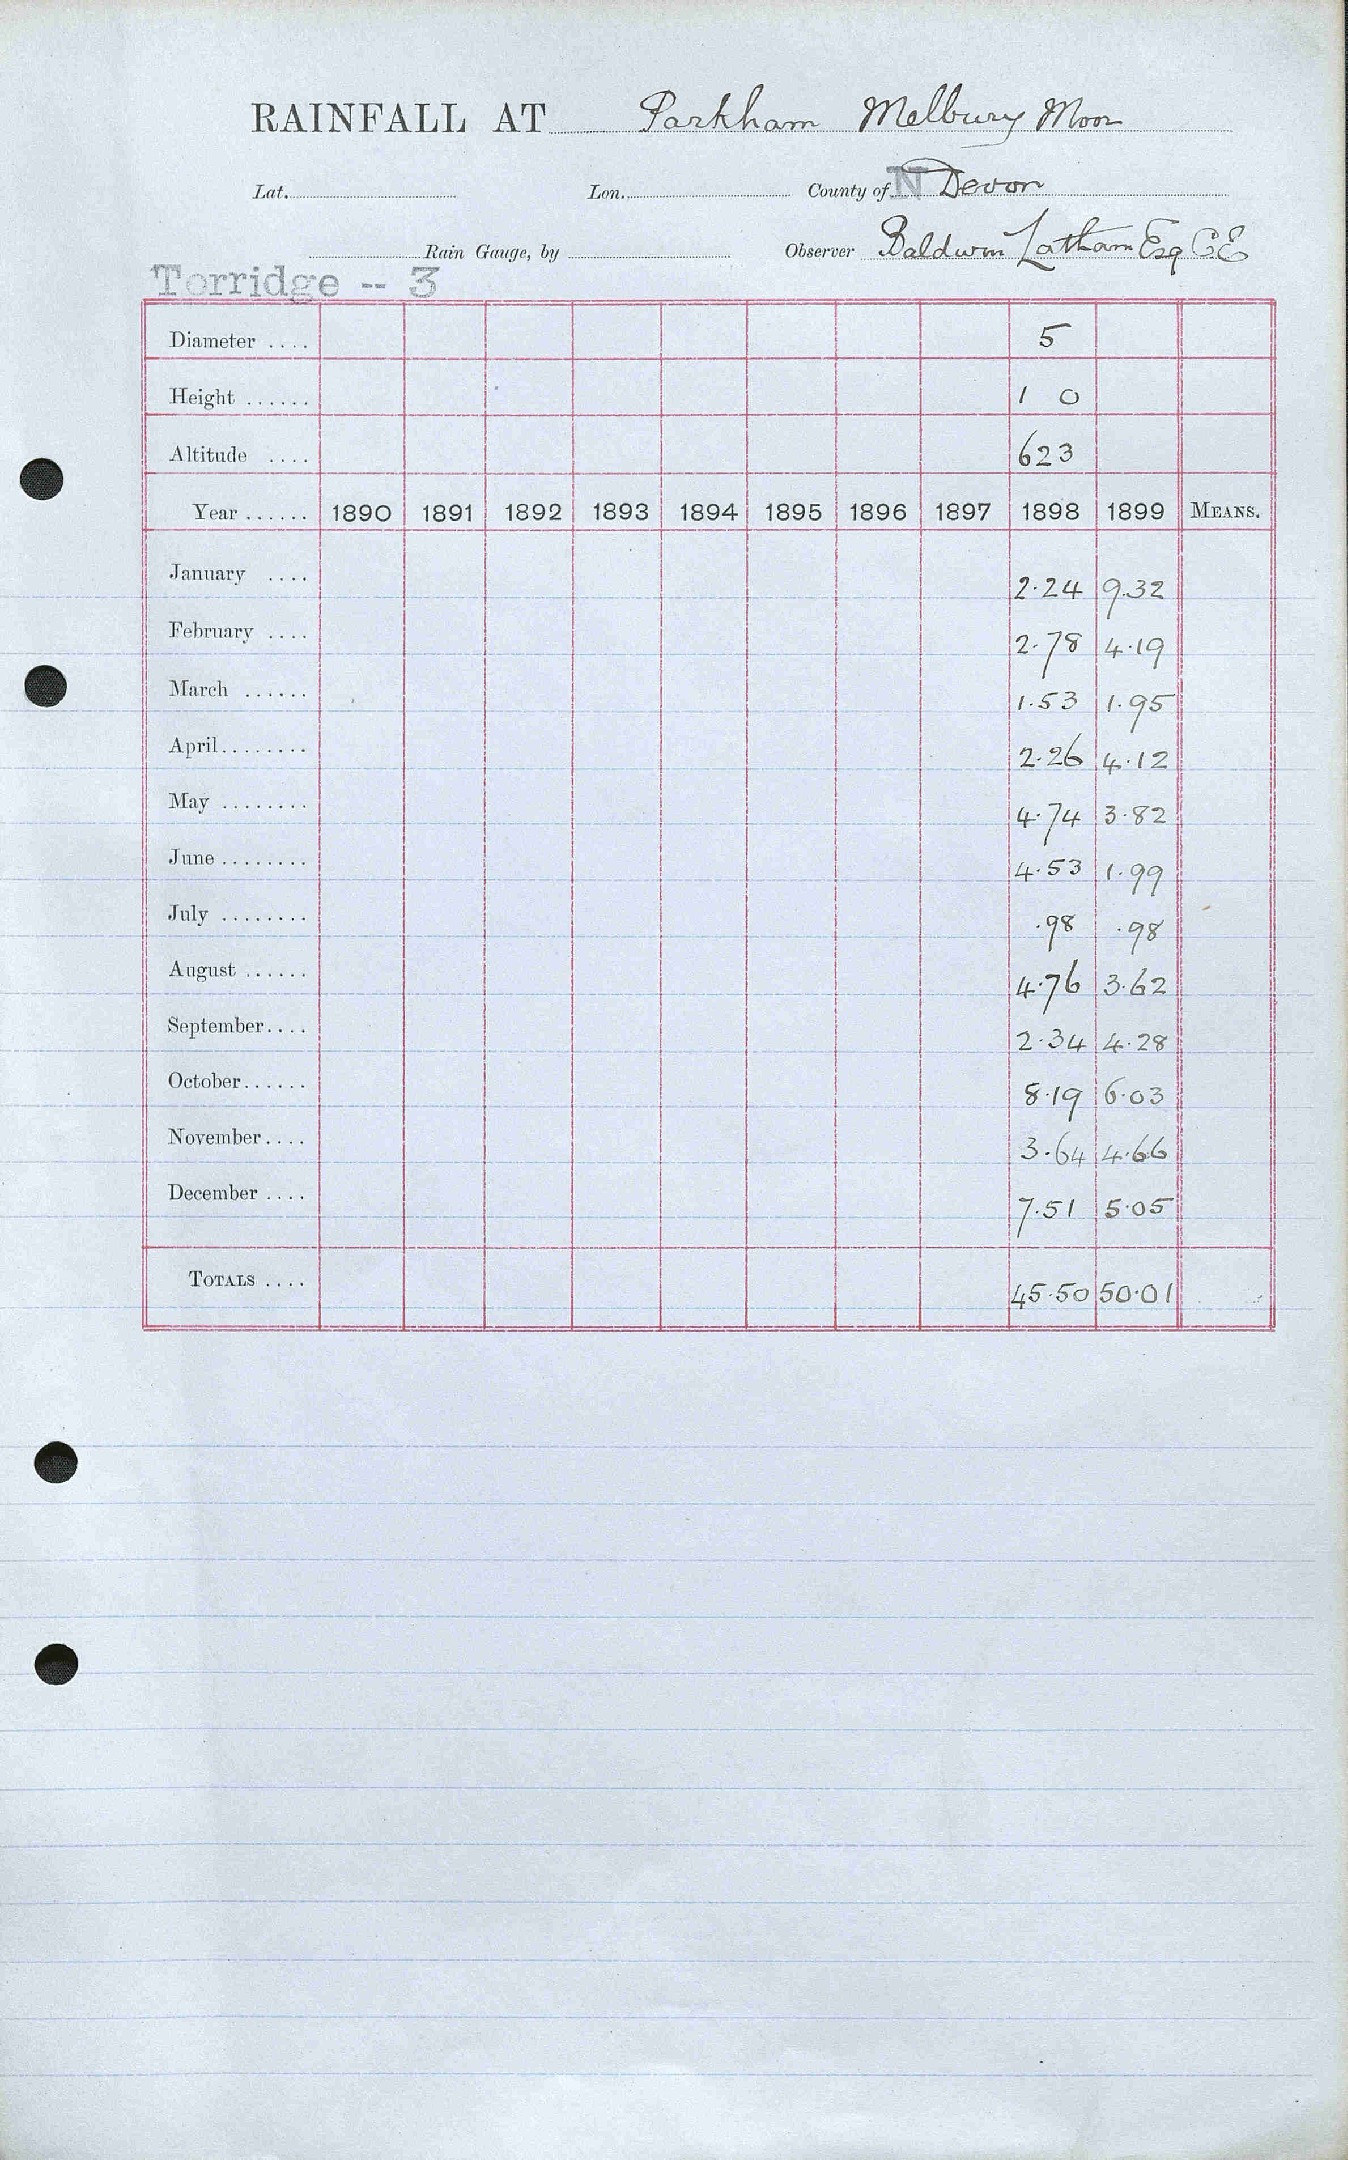 RAINFALL AT Parkham Melbury Moor
Lat. Lon. County of N Devon
Rain Gauge, by Observer Baldwin Latham Esq CE
Torridge -- 3
Diameter .... 5
Height ...... 1 0
Altitude .... 623
Year ...... 1890 1891 1892 1893 1894 1895 1896 1897 1898 1899 MEANS.
January .... 2.24 9.32
February .... 2.78 4.19
March ...... 1.53 1.95
April........ 2.26 4.12
May ........ 4.74 3.82
June ........ 4.53 1.99
July ........ .98 .98
August ...... 4.76 3.62
September.... 2.34 4.28
October...... 8.19 6.03
November.... 3.64 4.66
December .... 7.51 5.05
TOTALS .... 45.50 50.01